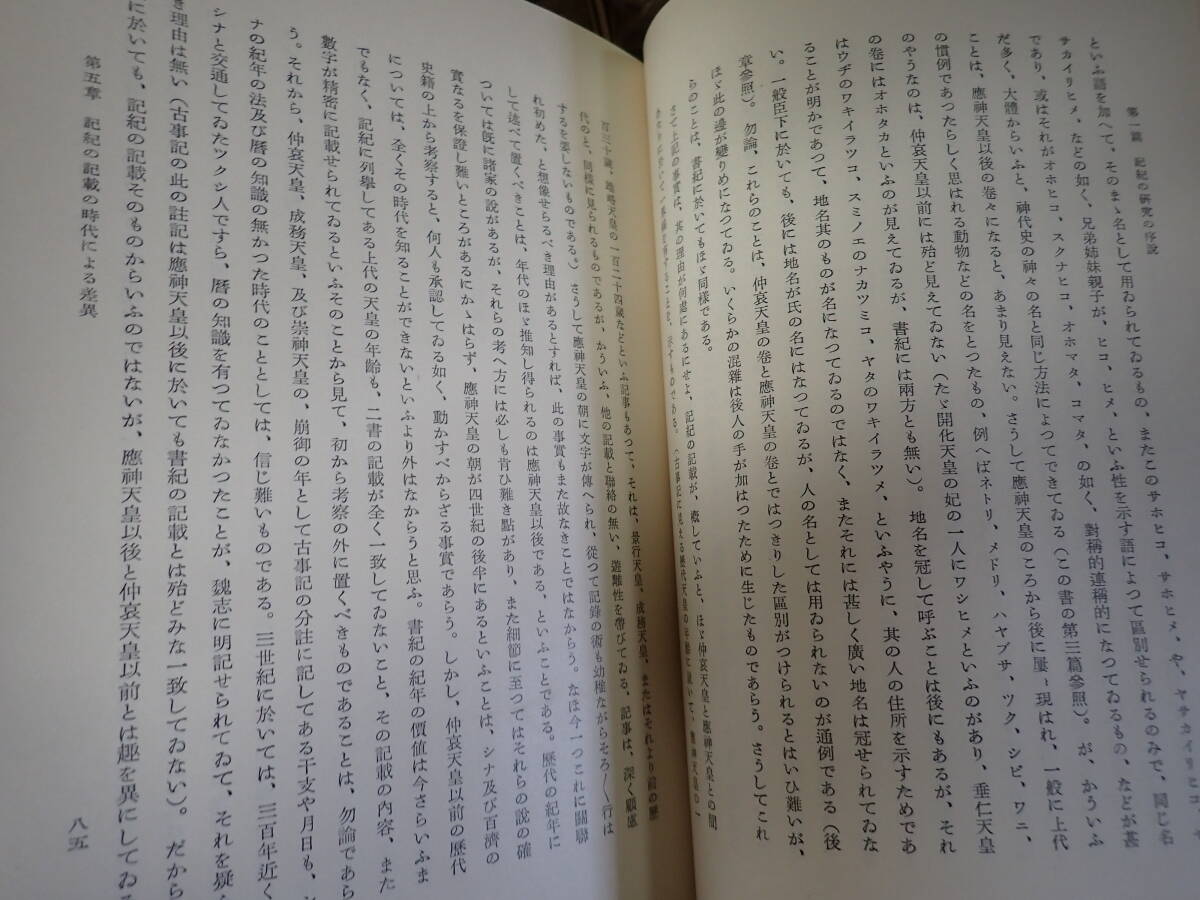 第一篇 記紀の研究の序説
といふ語を加へて、そのまゝ名として用ゐられてゐるもの、またこのサホヒコ、サホヒメ、や、ヤサカイリヒコ
サカイリヒメ、などの如く、兄弟姉妹親子が、ヒコ、ヒメ、といふ性を示す語によつて區別せられるのみで、同じ名
であり、或はそれがオホヒコ、スクナヒコ、オホマタ、コマタ、の如く、對稱的連稱的になつてゐるもの、などが甚
だ多く、大體からいふと、神代史の神々の名と同じ方法によつてできてゐる（この書の第三篇參照）。が、かういふ
ことは、應神天皇以後の卷々になると、あまり見えない。さうして應神天皇のころから後に屢〻現はれ、一般に上代
の慣例であつたらしく思はれる動物などの名をとつたもの、例へばネトリ、メドリ、ハヤブサ、ツク、シビ、ワニ、
のやうなのは、仲哀天皇以前には殆ど見えてゐない（たゞ開化天皇の妃の一人にワシヒメといふのがあり、垂仁天皇
の卷にはオホタカといふのが見えてゐるが、書紀には兩方とも無い）。地名を冠して呼ぶことは後にもあるが、それ
はウヂのワキイラツコ、スミノエのナカツミコ、ヤタのワキイラツメ、といふやうに、其の人の住所を示すためであ
ることが明かであつて、地名其のものが名になつてゐるのではなく、またそれには甚しく廣い地名は冠せられてゐな
い。一般臣下に於いても、後には地名が氏の名にはなつてゐるが、人の名としては用ゐられないのが通例である（後
章參照）。勿論、これらのことは、仲哀天皇の卷と應神天皇の卷とではつきりした區別がつけられるとはいひ難いが、
ほゞ此の邊が變りめになつてゐる。いくらかの混雜は後人の手が加はつたために生じたものであらう。さうしてこれ
らのことは、書紀に於いてもほゞ同樣である。
さて上記の事實は、其の理由が何處にあるにせよ、記紀の記載が、概していふと、ほゞ仲哀天皇と應神天皇との間
百三十歳、雄略天皇の一百二十四歳などといふ記事もあつて、それは、景行天皇、成務天皇、またはそれより前の歷
代のと、同樣に見られるものであるが、かういふ、他の記載と聯絡の無い、遊離性を帶びてゐる、記事は、深く顧慮
するを要しないものである。）さうして應神天皇の朝に文字が傳へられ、從つて記錄の術も幼稚ながらそろ〳〵行は
れ初めた、と想像せらるべき理由があるとすれば、此の事實もまた故なきことではなからう。なほ今一つこれに關聯
して述べて置くべきことは、年代のほゞ推知し得られるのは應神天皇以後である、といふことである。歷代の紀年に
ついては既に諸家の說があるが、それらの考へ方には必しも肯ひ難き點があり、また細節に至つてはそれらの說の確
實なるを保證し難いところがあるにかゝはらず、應神天皇の朝が四世紀の後半にあるといふことは、シナ及び百濟の
史籍の上から考察すると、何人も承認してゐる如く、動かすべからざる事實であらう。しかし、仲哀天皇以前の歷代
については、全くその時代を知ることができないといふより外はなからうと思ふ。書紀の紀年の價値は今さらいふま
でもなく、記紀に列擧してある上代の天皇の年齡も、二書の記載が全く一致してゐないこと、その記載の內容、また
數字が精密に記載せられてゐるといふそのことから見て、初から考察の外に置くべきものであることは、勿論であら
う。それから、仲哀天皇、成務天皇、及び崇神天皇の、崩御の年として古事記の分註に記してある干支や月日も、
ナの紀年の法及び曆の知識の無かつた時代のこととしては、信じ難いものである。三世紀に於いては、三百年近く
シナと交通してゐたツクシ人ですら、曆の知識を有つてゐなかつたことが、魏志に明記せられてゐて、それを疑く
き理由は無い（古事記の此の註記は應神天皇以後に於いても書紀の記載とは殆どみな一致してゐない）。だから
に於いても、記紀の記載そのものからいふのではないが、應神天皇以後と仲哀天皇以前とは趣を異にしてゐる
第五章 記紀の記載の時代による差異
八五